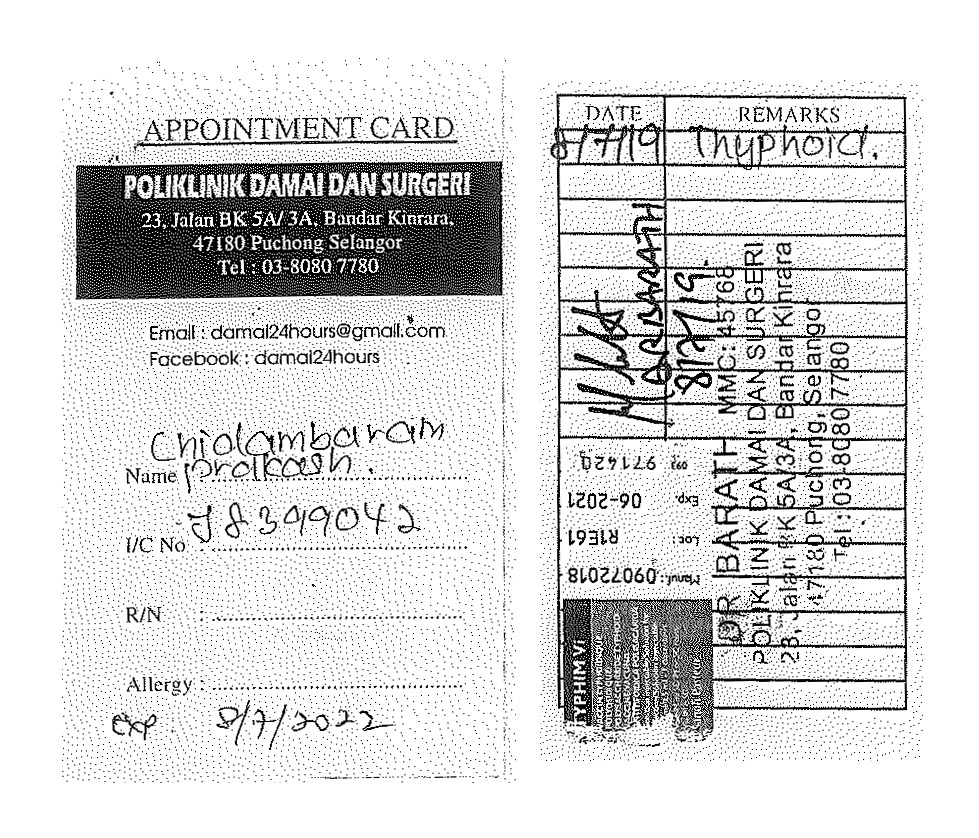 APPOINTMENT CARD
POLIKLINIK DAMAI DAN SURGERI
23, Jalan BK 5A/ 3A, Bandar Kinrara,
47180 Puchong Selangor
Tel : 03-8080 7780
Email : damai24hours@gmail.com
Facebook : damai24hours
Chidambaram
Name prakash.
I/C No : J8399042
R/N :
Allergy :
exp 8/7/2022
DATE REMARKS
8/7/19 Thyphoid.
DR BARATH
8/7/19.
DR BARATH MMC: 45768
POLIKLINIK DAMAI DAN SURGERI
23, Jalan BK 5A/3A, Bandar Kinrara
47180 Puchong, Selangor
Tel : 03-8080 7780
Exp. 06-2021
Lot : R1E61
Manuf.: 09072018
TYPHIM Vi